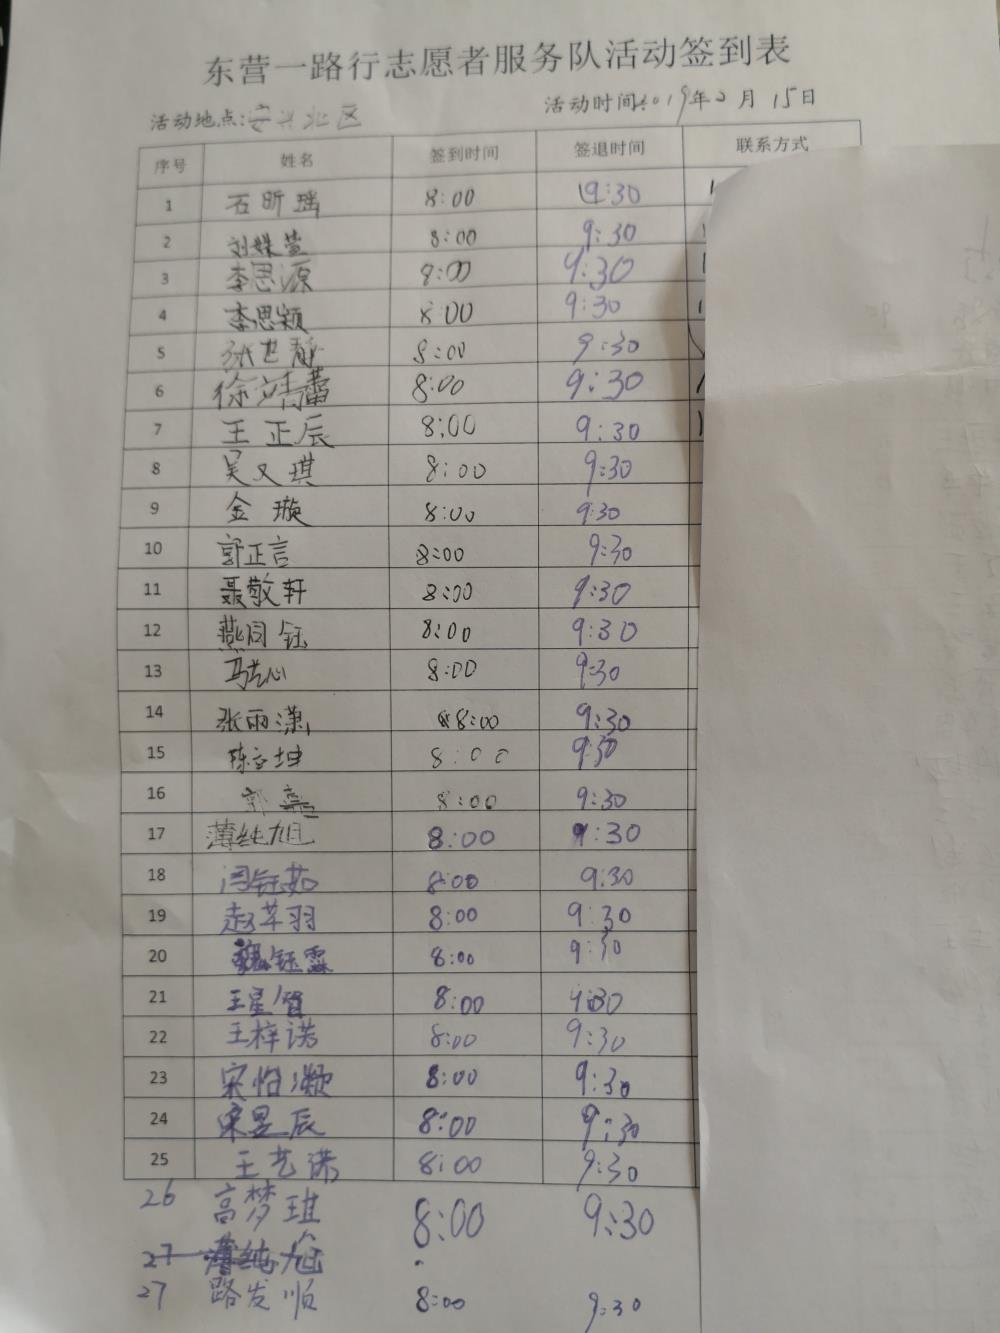 东营一路行志愿者服务队活动签到表
活动地点:安兴北区 活动时间:2019年2月15日
序号 姓名 签到时间 签退时间 联系方式
1 石昕瑶 8:00 9:30
2 刘姝萱 8:00 9:30
3 李思源 8:00 9:30
4 李思颖 8:00 9:30
5 张艺静 8:00 9:30
6 徐靖蕾 8:00 9:30
7 王正辰 8:00 9:30
8 吴又琪 8:00 9:30
9 金璇 8:00 9:30
10 郭正言 8:00 9:30
11 聂敬轩 8:00 9:30
12 燕同钰 8:00 9:30
13 马艺心 8:00 9:30
14 张雨潇 8:00 9:30
15 陈立坤 8:00 9:30
16 郭 8:00 9:30
17 薄纯旭 8:00 9:30
18 闫钰茹 8:00 9:30
19 赵苹羽 8:00 9:30
20 魏钰霖 8:00 9:30
21 王星智 8:00 9:30
22 王梓诺 8:00 9:30
23 宋怡灏 8:00 9:30
24 宋昱辰 8:00 9:30
25 王艺诺 8:00 9:30
26 高梦琪 8:00 9:30
27 薄纯
27 路发顺 8:00 9:30